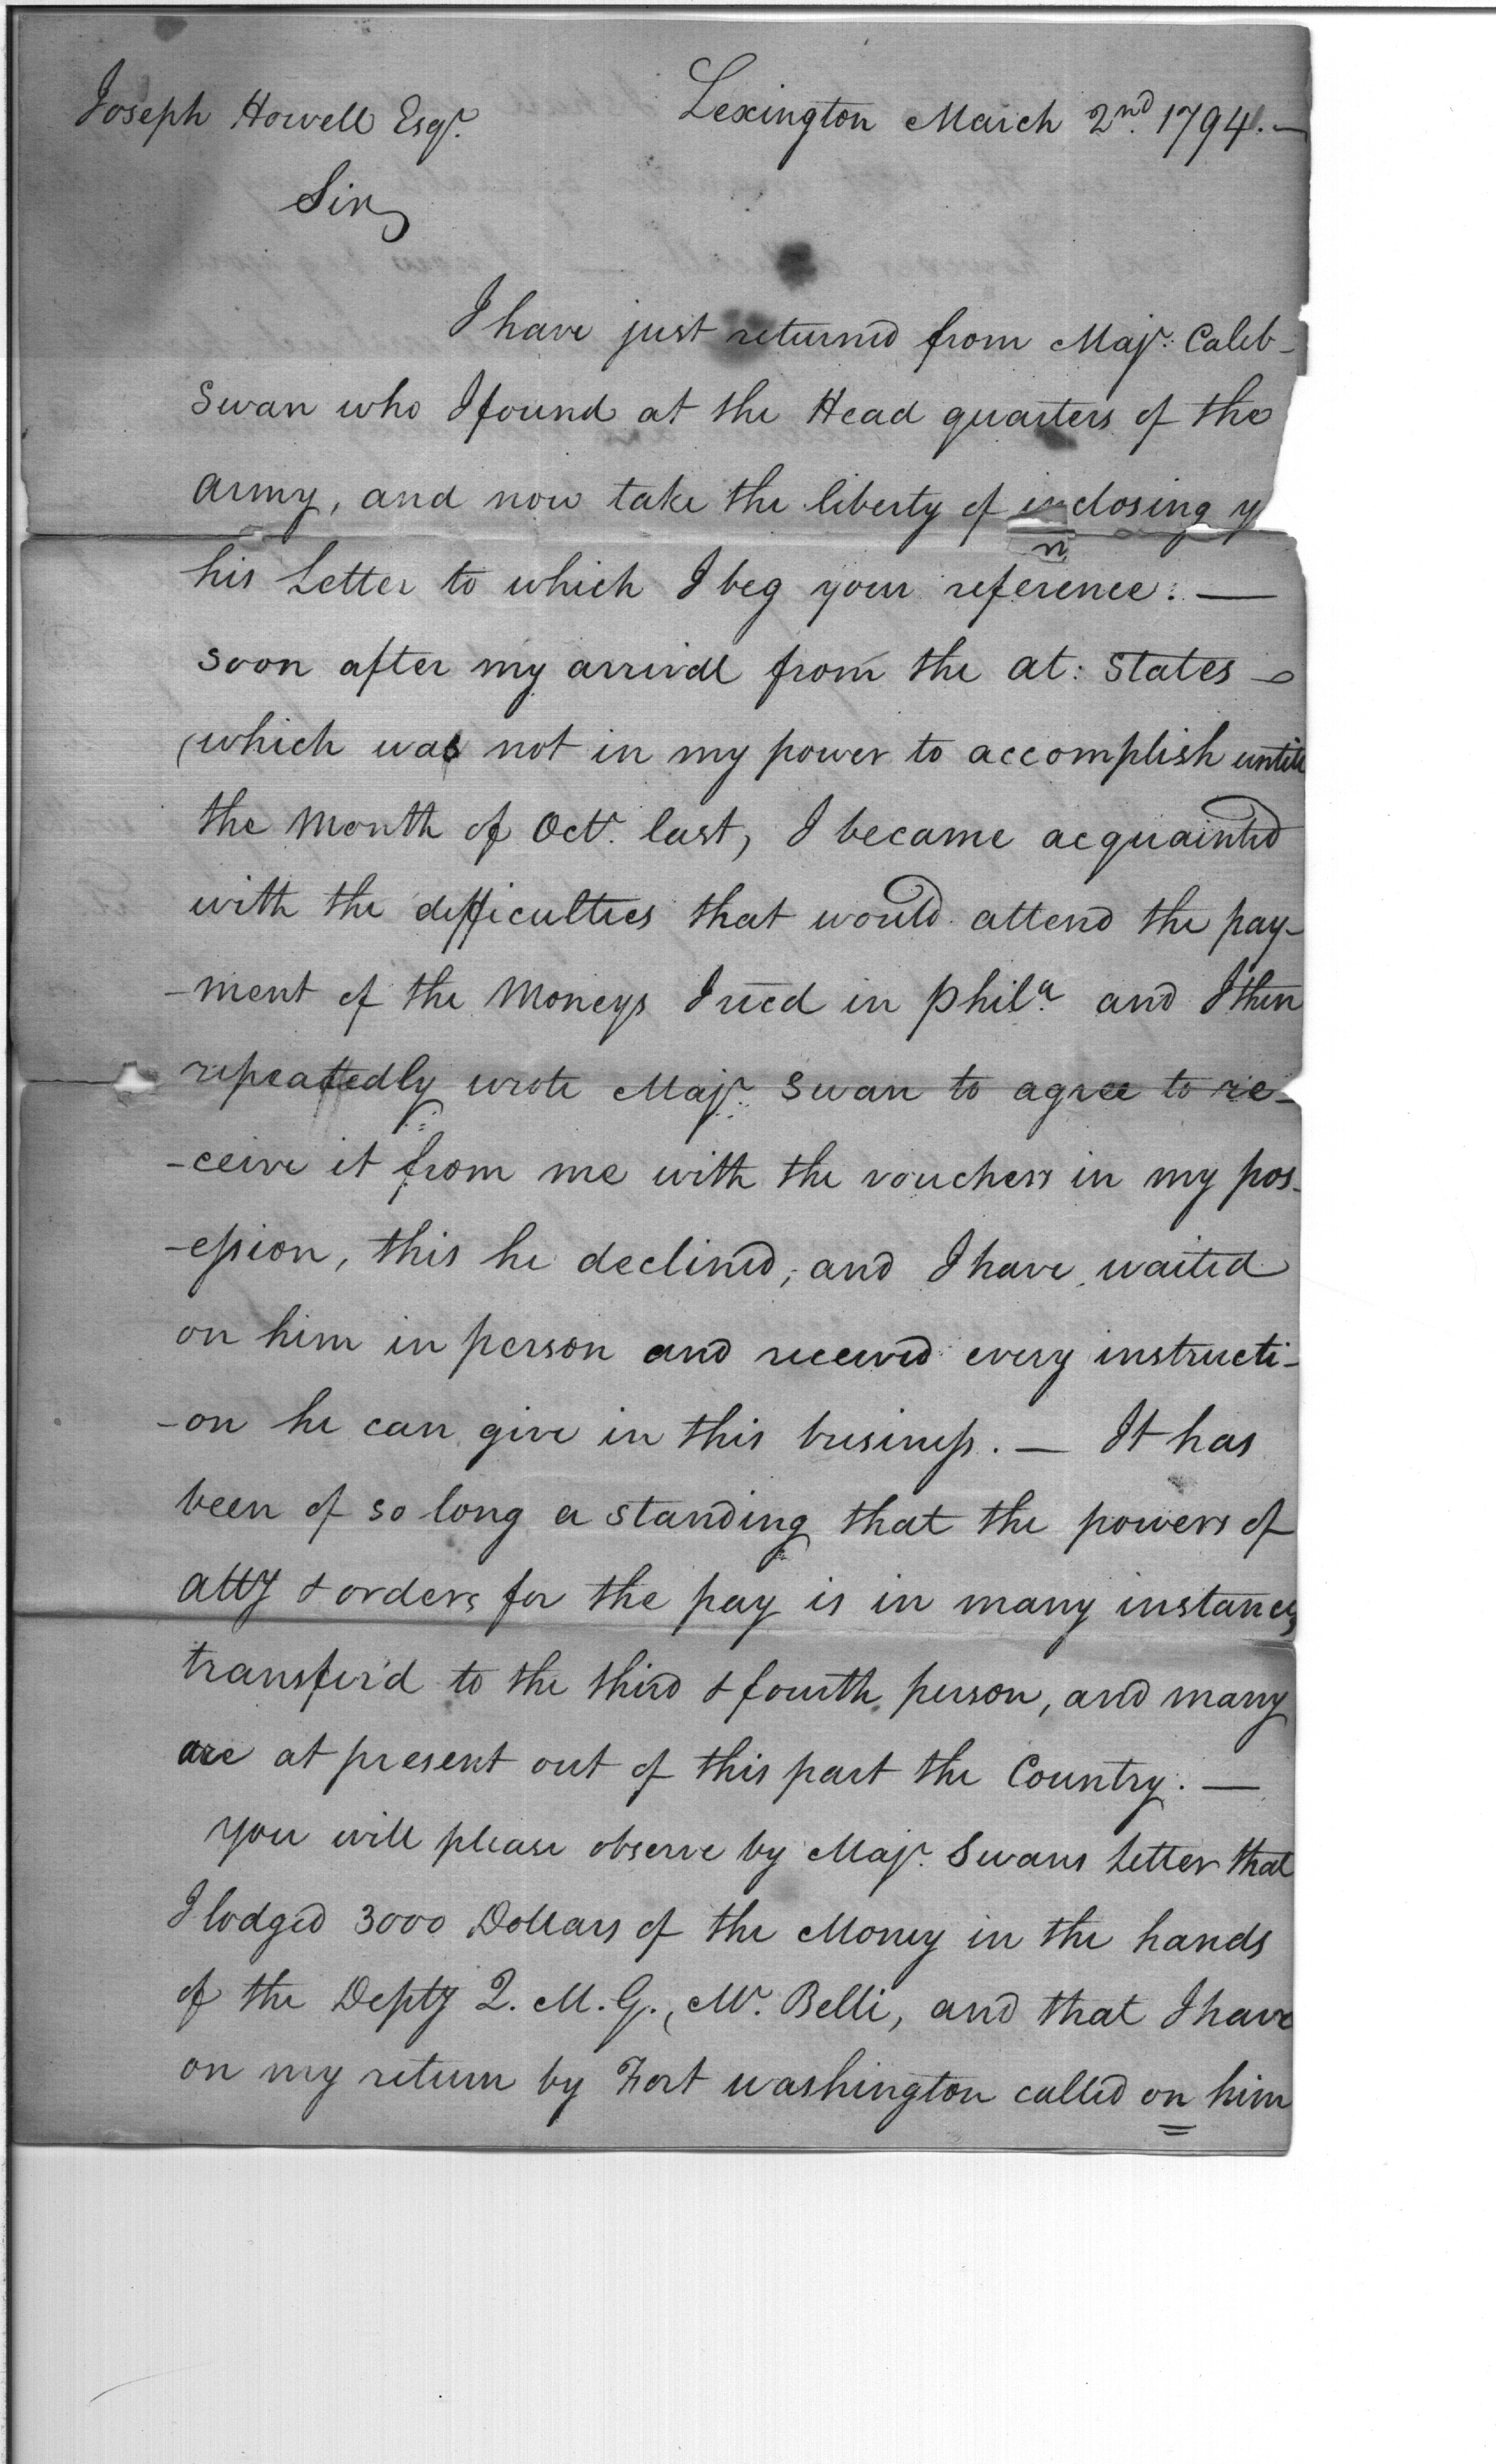 Joseph Howell Esqr. Lexington March 2nd. 1794.—
Sir,
I have just returned from Majr. Caleb-
Swan who I found at the Head quarters of the
Army, and now take the liberty of inclosing y
his Letter to which I beg your reference. —
soon after my arrival from the at: States —
(which was not in my power to accomplish untill
the Month of Octr. last, I became acquainted
with the difficulties that would attend the pay-
-ment of the Moneys I recd in Phila. and I then
repeatedly wrote Majr. Swan to agree to re-
-ceive it from me with the vouchers in my pos-
-ession, this he declined, and I have waited
on him in person and received every instructi-
-on he can give in this business. — It has
been of so long a standing that the powers of
atty & orders for the pay is in many instances
transfer'd to the third & fourth person, and many
are at present out of this part the Country. —
you will please observe by Majr. Swans Letter that
I lodged 3000 Dollars of the Money in the hands
of the Depty Q. M. G., Mr. Belli, and that I have
on my return by Fort Washington called on him